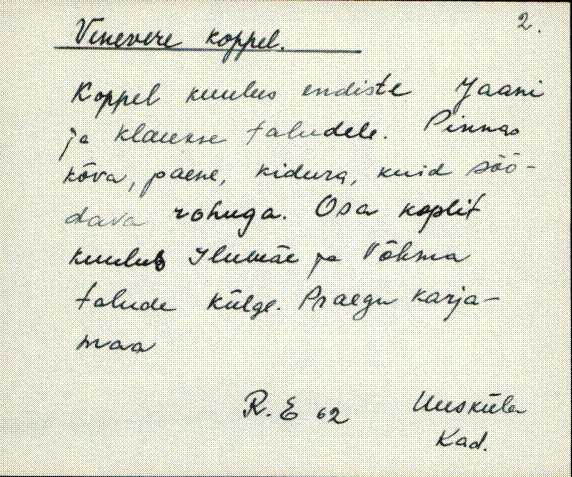 2.
Vinevere koppel.
Koppel kuulus endiste Jaani
ja Klaukse taludele. Pinnas
kõva, paene, kidura, kuid söö-
dava rohuga. Osa koplit
kuulub Ilumäe ja Võhma
talude külge. Praegu karja-
maa
R. E 62
Uusküla
Kad.